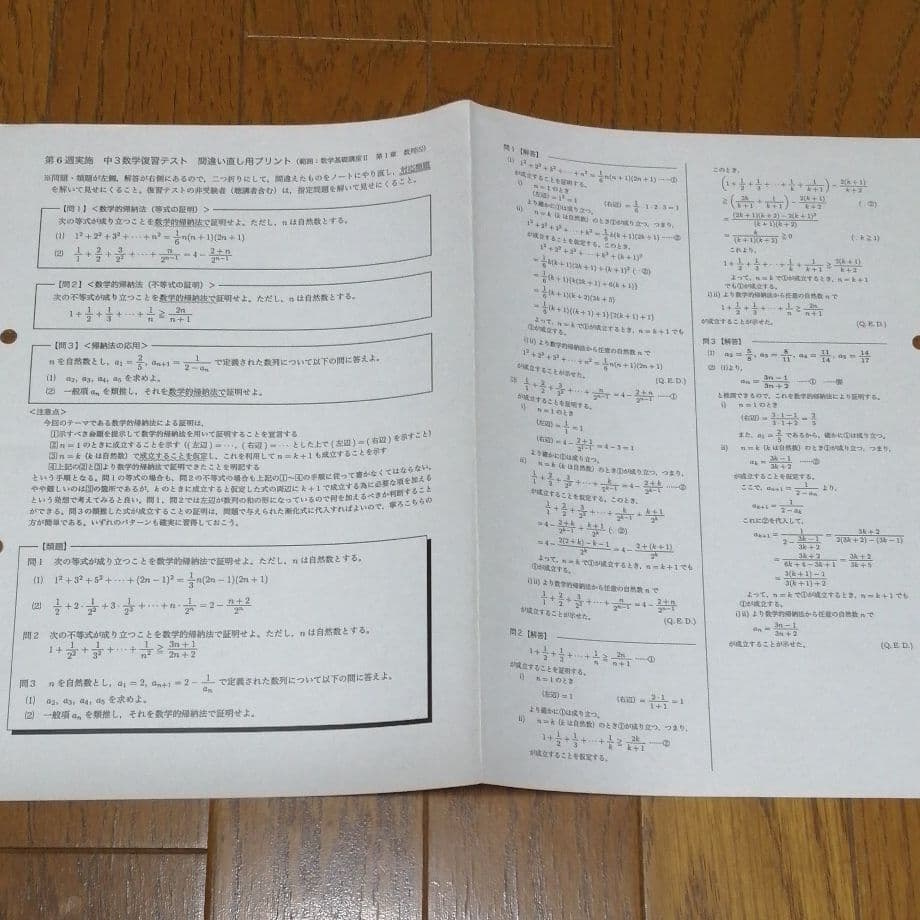 第6週実施　中3数学復習テスト　間違い直し用プリント（範囲：数学基礎講座Ⅱ　第1章　数列⑸）
※問題・類題が左側，解答が右側にあるので，二つ折りにして，間違えたものをノートにやり直し，対応類題
を解いて見せにくること。復習テストの非受験者（聴講者含む）は，指定問題を解いて見せにくること。
【問1】＜数学的帰納法（等式の証明）＞
次の等式が成り立つことを数学的帰納法で証明せよ。ただし，nは自然数とする。
(1) 1²+2²+3²+⋯+n²=1/6 n(n+1)(2n+1)
(2) 1/1+2/2+3/2²+⋯+n/2ⁿ⁻¹=4−(2+n)/2ⁿ⁻¹
【問2】＜数学的帰納法（不等式の証明）＞
次の不等式が成り立つことを数学的帰納法で証明せよ。ただし，nは自然数とする。
1+1/2+1/3+⋯+1/n≧2n/(n+1)
【問3】＜帰納法の応用＞
nを自然数とし，a₁=2/5，aₙ₊₁=1/(2−aₙ) で定義された数列について以下の問に答えよ。
(1) a₂, a₃, a₄, a₅ を求めよ。
(2) 一般項 aₙ を類推し，それを数学的帰納法で証明せよ。
＜注意点＞
今回のテーマである数学的帰納法による証明は，
①示すべき命題を提示して数学的帰納法を用いて証明することを宣言する
②n=1のときに成立することを示す（（左辺）=⋯，（右辺）=⋯とした上で（左辺）=（右辺）を示すこと）
③n=k（kは自然数）で成立することを仮定し，これを利用してn=k+1も成立することを示す
④上記の②と③より数学的帰納法で証明できたことを明記する
という手順となる。問1の等式の場合も，問2の不等式の場合も上記の①〜④の手順に従って書かなくてはならない。
やや難しいのは③の箇所であるが，kのときに成立すると仮定した式の両辺にk+1で成立する為に必要な項を加える
という発想で考えてみると良い。問1，問2では左辺が数列の和の形になっているので何を加えるべきか判断すること
ができる。問3の類推した式が成立することの証は，問題で与えられた漸化式に代入すればよいので，寧ろこちらの
方が簡単である。いずれのパターンも確実に習得しておこう。
【類題】
問1　次の等式が成り立つことを数学的帰納法で証明せよ。ただし，nは自然数とする。
(1) 1²+3²+5²+⋯+(2n−1)²=1/3 n(2n−1)(2n+1)
(2) 1/2+2・1/2²+3・1/2³+⋯+n・1/2ⁿ=2−(n+2)/2ⁿ
問2　次の不等式が成り立つことを数学的帰納法で証明せよ。ただし，nは自然数とする。
1+1/2²+1/3²+⋯+1/n²≧(3n+1)/(2n+2)
問3　nを自然数とし，a₁=2，aₙ₊₁=2−1/aₙ で定義された数列について以下の問に答えよ。
(1) a₂, a₃, a₄, a₅ を求めよ。
(2) 一般項 aₙ を類推し，それを数学的帰納法で証明せよ。
問1【解答】
(1) 1²+2²+3²+⋯+n²=1/6 n(n+1)(2n+1) ……①
が成立することを証明する。
i) n=1のとき
（左辺）=1²=1　（右辺）=1/6・1・2・3=1
より確かに①は成り立つ。
ii) n=k（kは自然数）のとき①が成り立つ，つまり，
1²+2²+3²+⋯+k²=1/6 k(k+1)(2k+1) ……②
が成立することを仮定する。このとき，
1²+2²+3²+⋯+k²+(k+1)²
=1/6 k(k+1)(2k+1)+(k+1)² (∵②)
=1/6 (k+1){k(2k+1)+6(k+1)}
=1/6 (k+1)(k+2)(2k+3)
=1/6 (k+1){(k+1)+1}{2(k+1)+1}
よって，n=kで①が成立するとき，n=k+1でも
①が成立する。
i)ii)より数学的帰納法から任意の自然数nで
1²+2²+3²+⋯+n²=1/6 n(n+1)(2n+1)
が成立することが示せた。　(Q.E.D.)
(2) 1/1+2/2+3/2²+⋯+n/2ⁿ⁻¹=4−(2+n)/2ⁿ⁻¹ ……①
が成立することを証明する。
i) n=1のとき
（左辺）=1/1=1
（右辺）=4−(2+1)/2¹⁻¹=4−3=1
より確かに①は成り立つ。
ii) n=k（kは自然数）のとき①が成り立つ，つまり，
1/1+2/2+3/2²+⋯+k/2ᵏ⁻¹=4−(2+k)/2ᵏ⁻¹ ……②
が成立することを仮定する。このとき，
1/1+2/2+3/2²+⋯+k/2ᵏ⁻¹+(k+1)/2ᵏ
=4−(2+k)/2ᵏ⁻¹+(k+1)/2ᵏ (∵②)
=4−(2(2+k)−k−1)/2ᵏ=4−(2+(k+1))/2ᵏ
よって，n=kで①が成立するとき，n=k+1でも
①が成立する。
i)ii)より数学的帰納法から任意の自然数nで
1/1+2/2+3/2²+⋯+n/2ⁿ⁻¹=4−(2+n)/2ⁿ⁻¹
が成立することが示せた。　(Q.E.D.)
問2【解答】
1+1/2+1/3+⋯+1/n≧2n/(n+1) ……①
が成立することを証明する。
i) n=1のとき
（左辺）=1　（右辺）=2・1/(1+1)=1
より確かに①は成り立つ。
ii) n=k（kは自然数）のとき①が成り立つ，つまり，
1+1/2+1/3+⋯+1/k≧2k/(k+1) ……②
が成立することを仮定する。
このとき，
(1+1/2+1/3+⋯+1/k+1/(k+1))−2(k+1)/(k+2)
≧(2k/(k+1)+1/(k+1))−2(k+1)/(k+2) (∵②)
=((2k+1)(k+2)−2(k+1)²)/((k+1)(k+2))
=k/((k+1)(k+2))≧0 (∵k≧1)
これより，
1+1/2+1/3+⋯+1/k+1/(k+1)≧2(k+1)/(k+2)
よって，n=kで①が成立するとき，n=k+1
でも①が成立する。
i)ii)より数学的帰納法から任意の自然数nで
1+1/2+1/3+⋯+1/n≧2n/(n+1)
が成立することが示せた。　(Q.E.D.)
問3【解答】
(1) a₂=5/8，a₃=8/11，a₄=11/14，a₅=14/17
(2) (1)より，
aₙ=(3n−1)/(3n+2) ……①
と推測できるので，これを数学的帰納法により証明する。
i) n=1のとき
（右辺）=(3・1−1)/(3・1+2)=2/5
また，a₁=2/5 であるから，確かに①は成り立つ。
ii) n=k（kは自然数）のとき①が成り立つ，つまり，
aₖ=(3k−1)/(3k+2) ……②
が成立することを仮定する。
ここで，aₙ₊₁=1/(2−aₙ) より，
aₖ₊₁=1/(2−aₖ)
これに②を代入して，
aₖ₊₁=1/(2−(3k−1)/(3k+2))=(3k+2)/(2(3k+2)−(3k−1))
=(3k+2)/(6k+4−3k+1)=(3k+2)/(3k+5)
=(3(k+1)−1)/(3(k+1)+2)
よって，n=kで①が成立するとき，n=k+1でも
①が成立する。
i)ii)より数学的帰納法から任意の自然数nで
aₙ=(3n−1)/(3n+2)
が成立することが示せた。　(Q.E.D.)